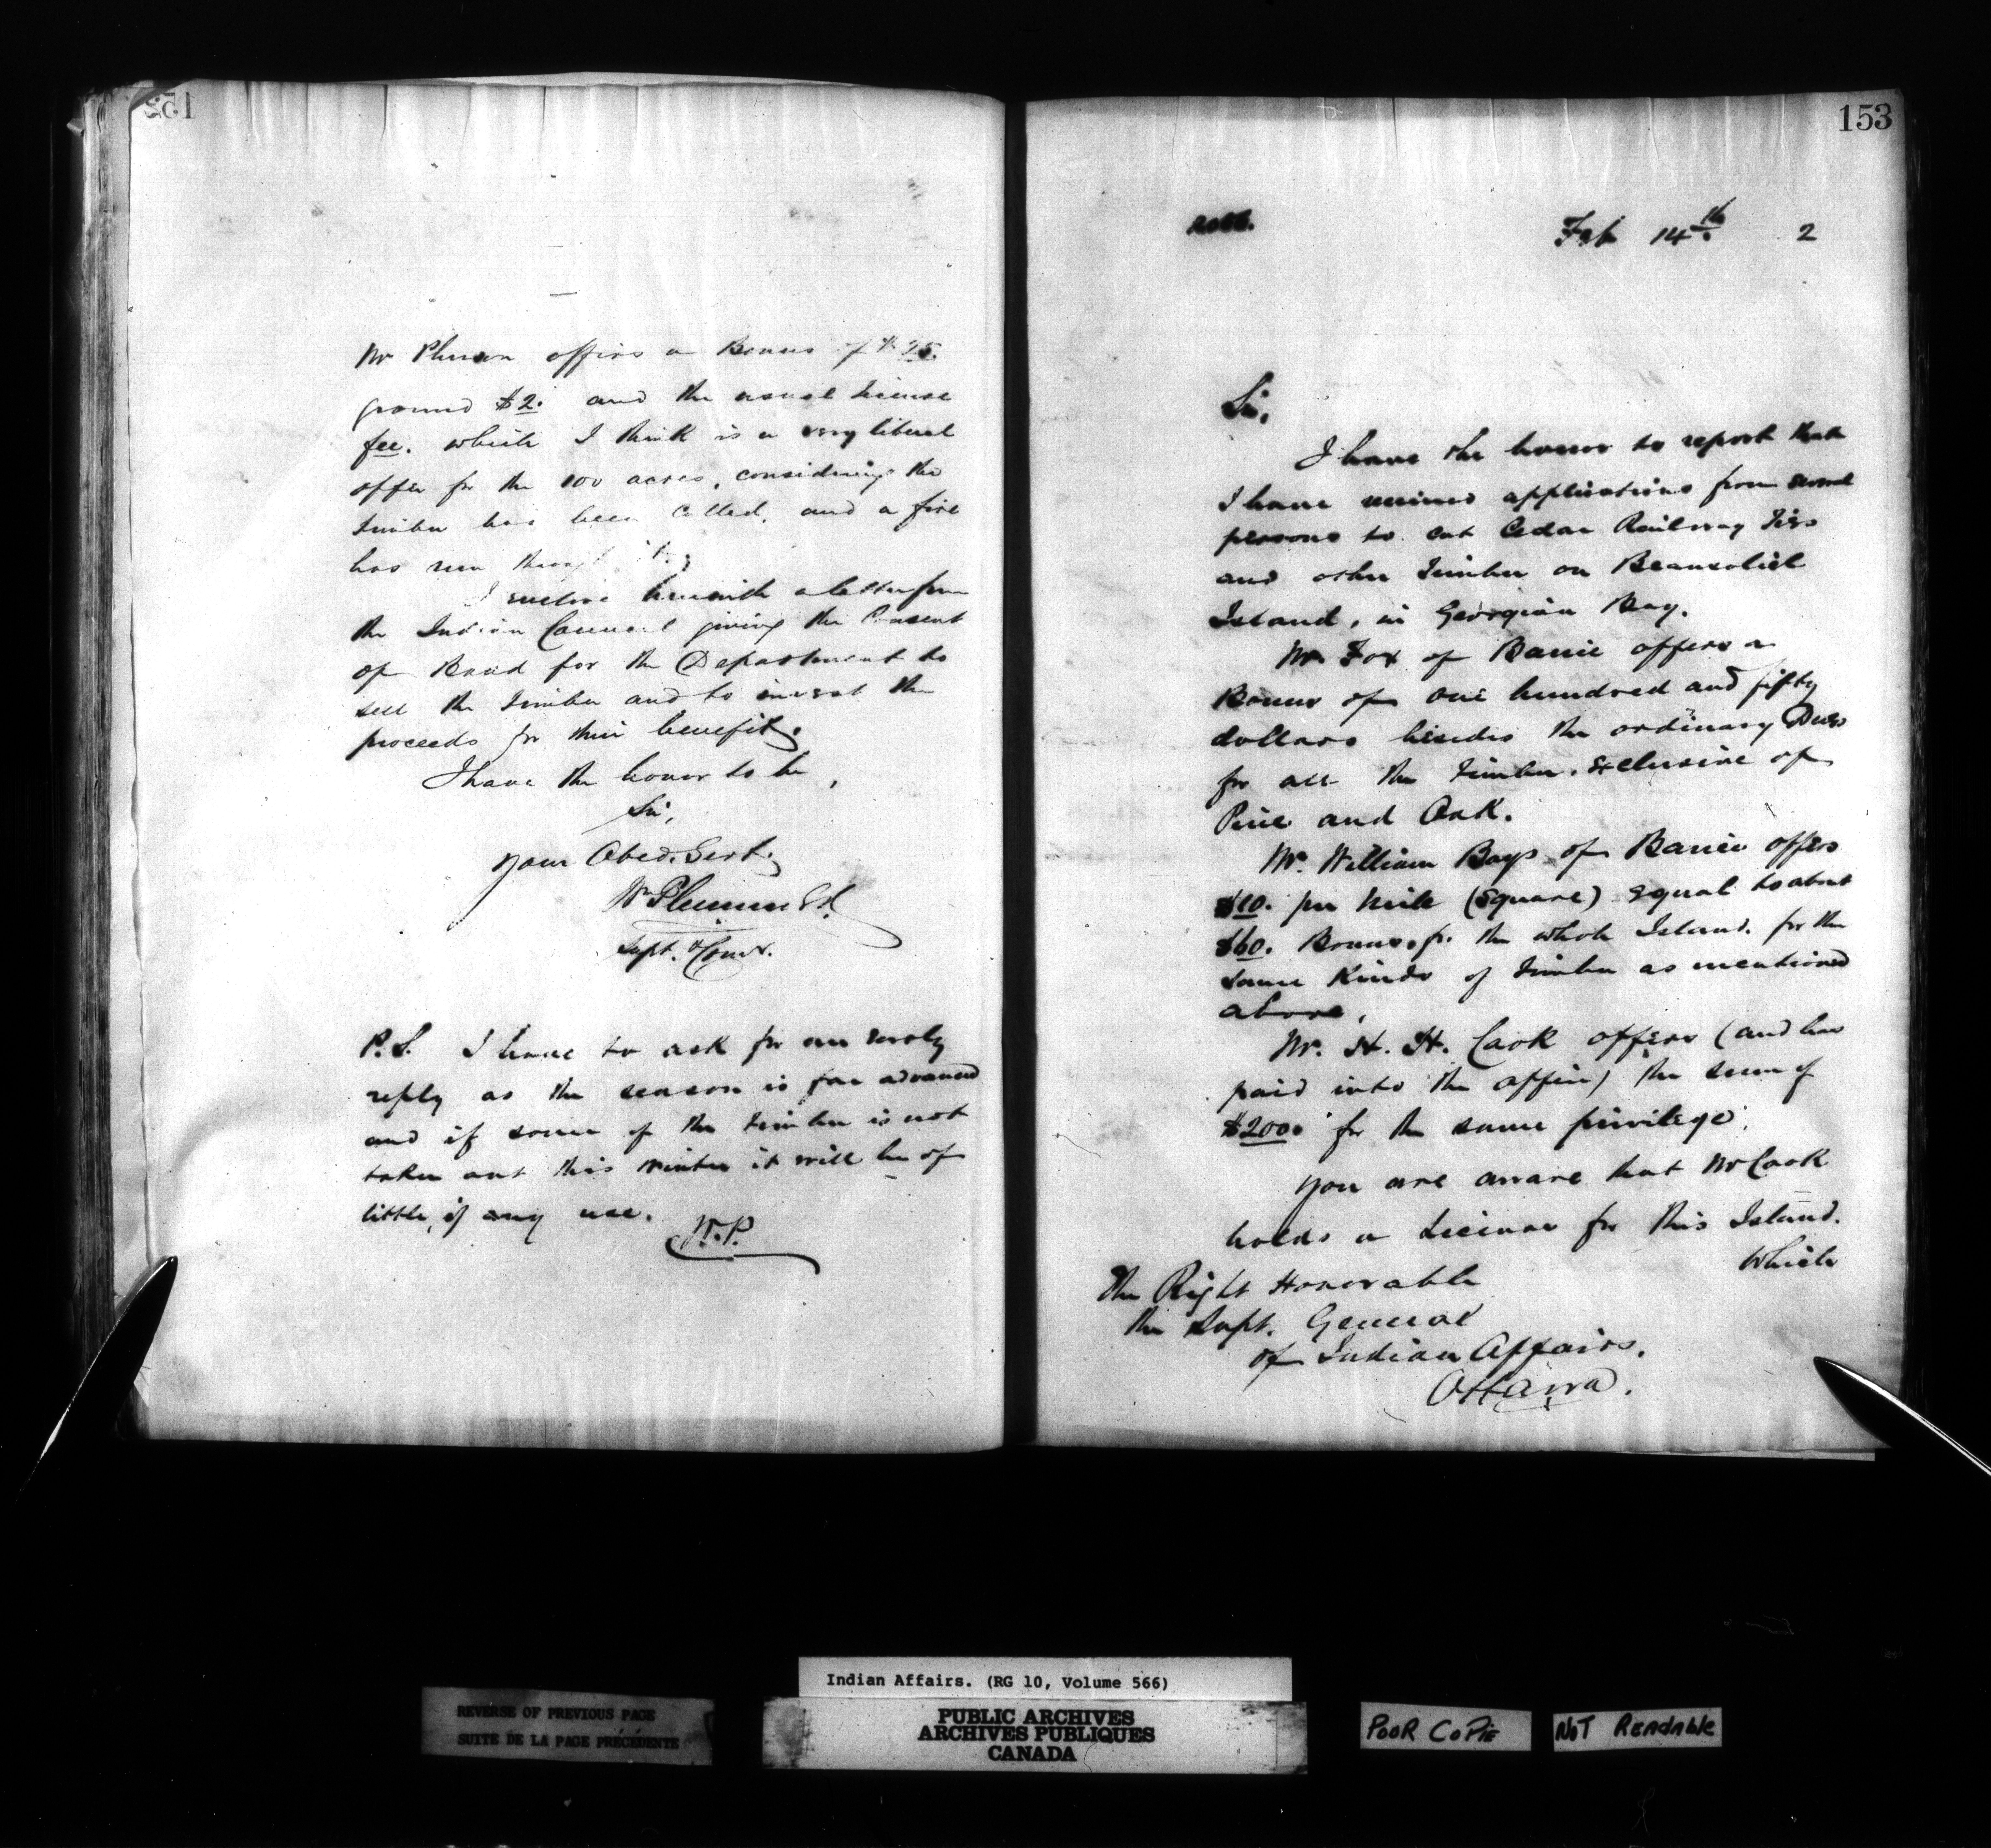 Mr Pherson offers a Bonus of $25.
ground $2. and the usual License
fee. which I think is a very liberal
offer for the 100 acres, considering the
timber has been culled, and a fire
has run through it.
I enclose herewith a letter from
the Indian Council giving the Consent
of Band for the Department to
sell the timber and to invest the
proceeds for their benefit.
I have the honor to be,
Sir,
Your Obed. Servt.
Wm Plummer
Supt. & Comr.
P.S. I have to ask for an early
reply as the season is far advanced
and if some of the timber is not
taken out this winter it will be of
little, if any use.
W.P.
153
Feb 14th 2
Sir,
I have the honor to report that
I have received applications from several
persons to cut Cedar Railway Ties
and other timber on Beausoliel
Island, in Georgian Bay.
Mr Fox of Barrie offers a
Bonus of one hundred and fifty
dollars besides the ordinary Dues
for all the timber, exclusive of
Pine and Oak.
Mr. William Boys of Barrie offers
$10. per mile (square) equal to about
$60. Bonus, for the whole Island. for the
same kinds of timber as mentioned
above,
Mr. H. H. Cook offers (and has
paid into the office) the sum of
$200. for the same privilege.
You are aware that Mr Cook
holds a License for this Island.
which
The Right Honorable
the Supt. General
of Indian Affairs.
Ottawa.
Indian Affairs. (RG 10, Volume 566)
REVERSE OF PREVIOUS PAGE
SUITE DE LA PAGE PRÉCÉDENTE
PUBLIC ARCHIVES
ARCHIVES PUBLIQUES
CANADA
POOR COPIE
NOT READABLE